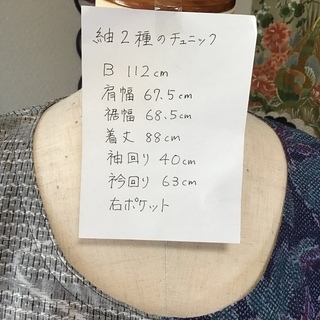 紬2種のチュニック
B 112cm
肩幅 67.5cm
裾幅 68.5cm
着丈 88cm
袖回り 40cm
衿回り 63cm
右ポケット